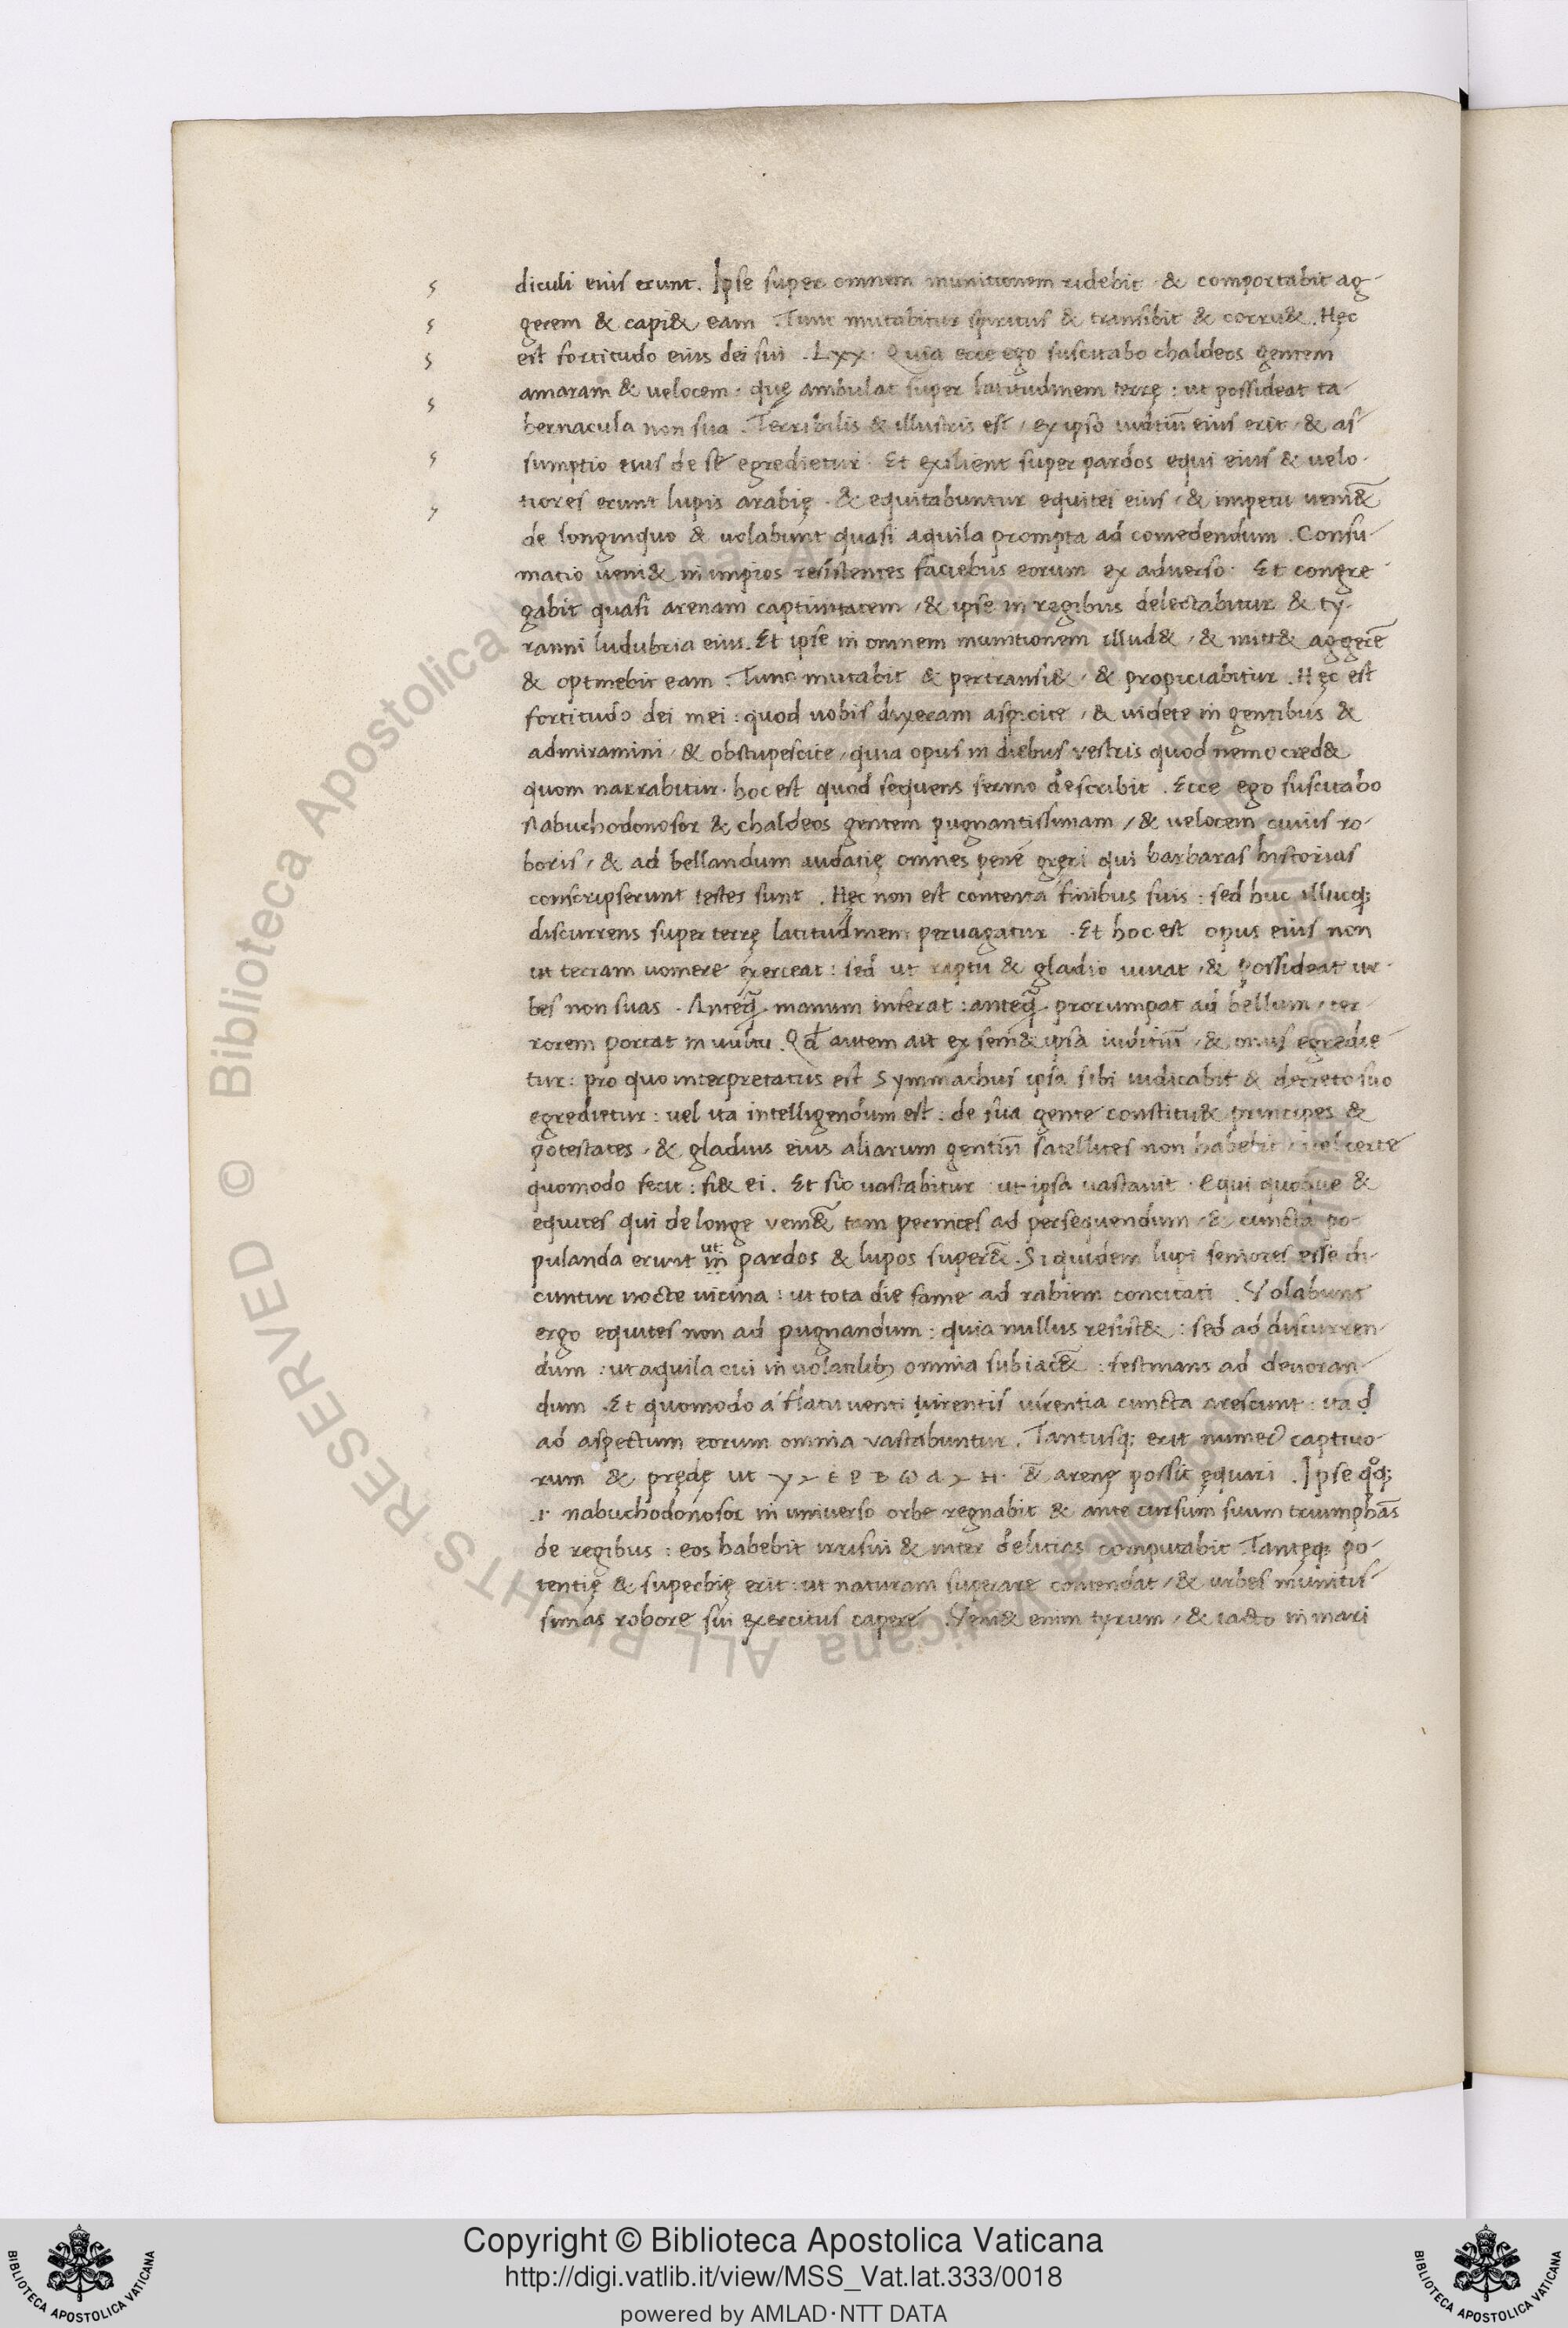 diculi eius erunt. Ipse super omnem munitionem ridebit · & comportabit ag-
gerem & capi& eam . Tunc mutabitur spiritus & transibit & corru& . Hęc
est fortitudo eius dei sui . Lxx . Quia ecce ego suscitabo chaldeos gentem
amaram & uelocem · quę ambulat super latitudinem terrę : ut possideat ta-
bernacula non sua . Terribilis & illustris est / ex ipso iuditiū eius erit / & as-
sumptio eius de se egredietur . Et exilient super pardos equi eius & uelo-
tiores erunt lupis arabię . & equitabuntur equites eius / & impetu ueni&̄
de longinquo & uolabunt quasi aquila prompta ad comedendum . Consu-
matio ueni& in impios resistentes faciebus eorum ex aduerso : Et congre-
gabit quasi arenam captiuitatem / & ipse in regibus delectabitur & ty-
ranni ludubria eius . Et ipse in omnem munitionem illud& / & mitt& aggerē
& optinebit eam . Tunc mutabit & pertransi& / & propiciabitur . Hęc est
fortitudo dei mei : quod uobis dixeram aspicite / & uidete in gentibus &
admiramini / & obstupescite / quia opus in diebus vestris quod nemo cred&
quom narrabitur . hoc est quod sequens sermo describit . Ecce ego suscitabo
Nabuchodonosor & chaldeos gentem pugnantissimam / & uelocem cuius ro-
boris / & ad bellandum audatię omnes pene gręci qui barbaras historias
conscripserunt testes sunt . Hęc non est contenta finibus suis : sed huc illucq;
discurrens super terrę latitudinem peruagatur . Et hoc est opus eius non
ut terram uomere exerceat : sed ut raptu & gladio uiuat / & possideat ur-
bes non suas . Anteq̄ . manum inserat : anteq̄ . prorumpat ad bellum / ter-
rorem portat in uultu . Qđ autem ait ex sem& ipsa iuditiū / & onus egredie-
tur : pro quo interpretatus est Symmachus ipsa sibi iudicabit & decreto suo
egredietur : uel ita intelligendum est : de sua gente constitu& principes &
potestates / & gladius eius aliarum gentiū satellites non habebit / uel certe
quomodo fecit : fi& ei . Et sic uastabitur : ut ipsa uastauit . Equi quoque &
equites qui de longe ueni&̄ tam pernices ad persequendum / & cuncta po-
pulanda erunt ut in pardos & lupos super&̄ . Siquidem lupi seniores esse di-
cuntur nocte uicina : ut tota die fame ad rabiem concitati . Volabunt
ergo equites non ad pugnandum : quia nullus resist& : sed ad discurren-
dum : ut aquila cui in uolatilib; omnia subiac&̄ : festinans ad deuoran-
dum . Et quomodo a flatu uenti urentis uirentia cuncta arescunt : ita
ad aspectum eorum omnia vastabuntur . Tantusq; erit numer captiuo-
rum & prędę ut arenę possit ęquari . Ipse qoq;
nabuchodonosor in uniuerso orbe regnabit & ante cursum suum triumphās
de regibus : eos habebit irrisui & inter delicias computabit Tantęq; po-
tentię & superbię erit : ut naturam superare contendat / & urbes munitis-
simas robore sui exercitus capere . Veni& enim tyrum / & iacto in mari
© Biblioteca Apostolica Vaticana
ALL RIGHTS RESERVED
Copyright © Biblioteca Apostolica Vaticana
http://digi.vatlib.it/view/MSS_Vat.lat.333/0018
powered by AMLAD·NTT DATA
BIBLIOTECA APOSTOLICA VATICANA
BIBLIOTECA APOSTOLICA VATICANA